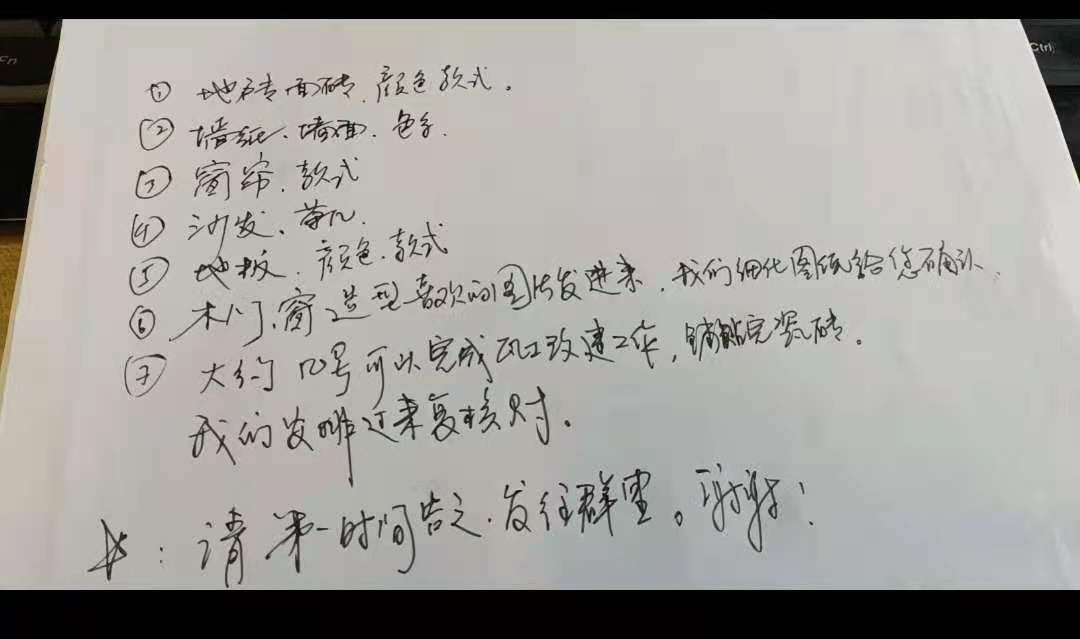 ① 地砖面砖、颜色款式。
② 墙纸、墙面、色系.
③ 窗帘、款式
④ 沙发、茶几.
⑤ 地板、颜色、款式
⑥ 木门、窗造型喜欢的图片发进来,我们细化图纸给您确认、
⑦ 大约几号可以完成风口改建工作,铺贴完瓷砖。
我们安排过来复核尺寸。
请第一时间告之、发往群里。谢谢!
Fn
Ctrl